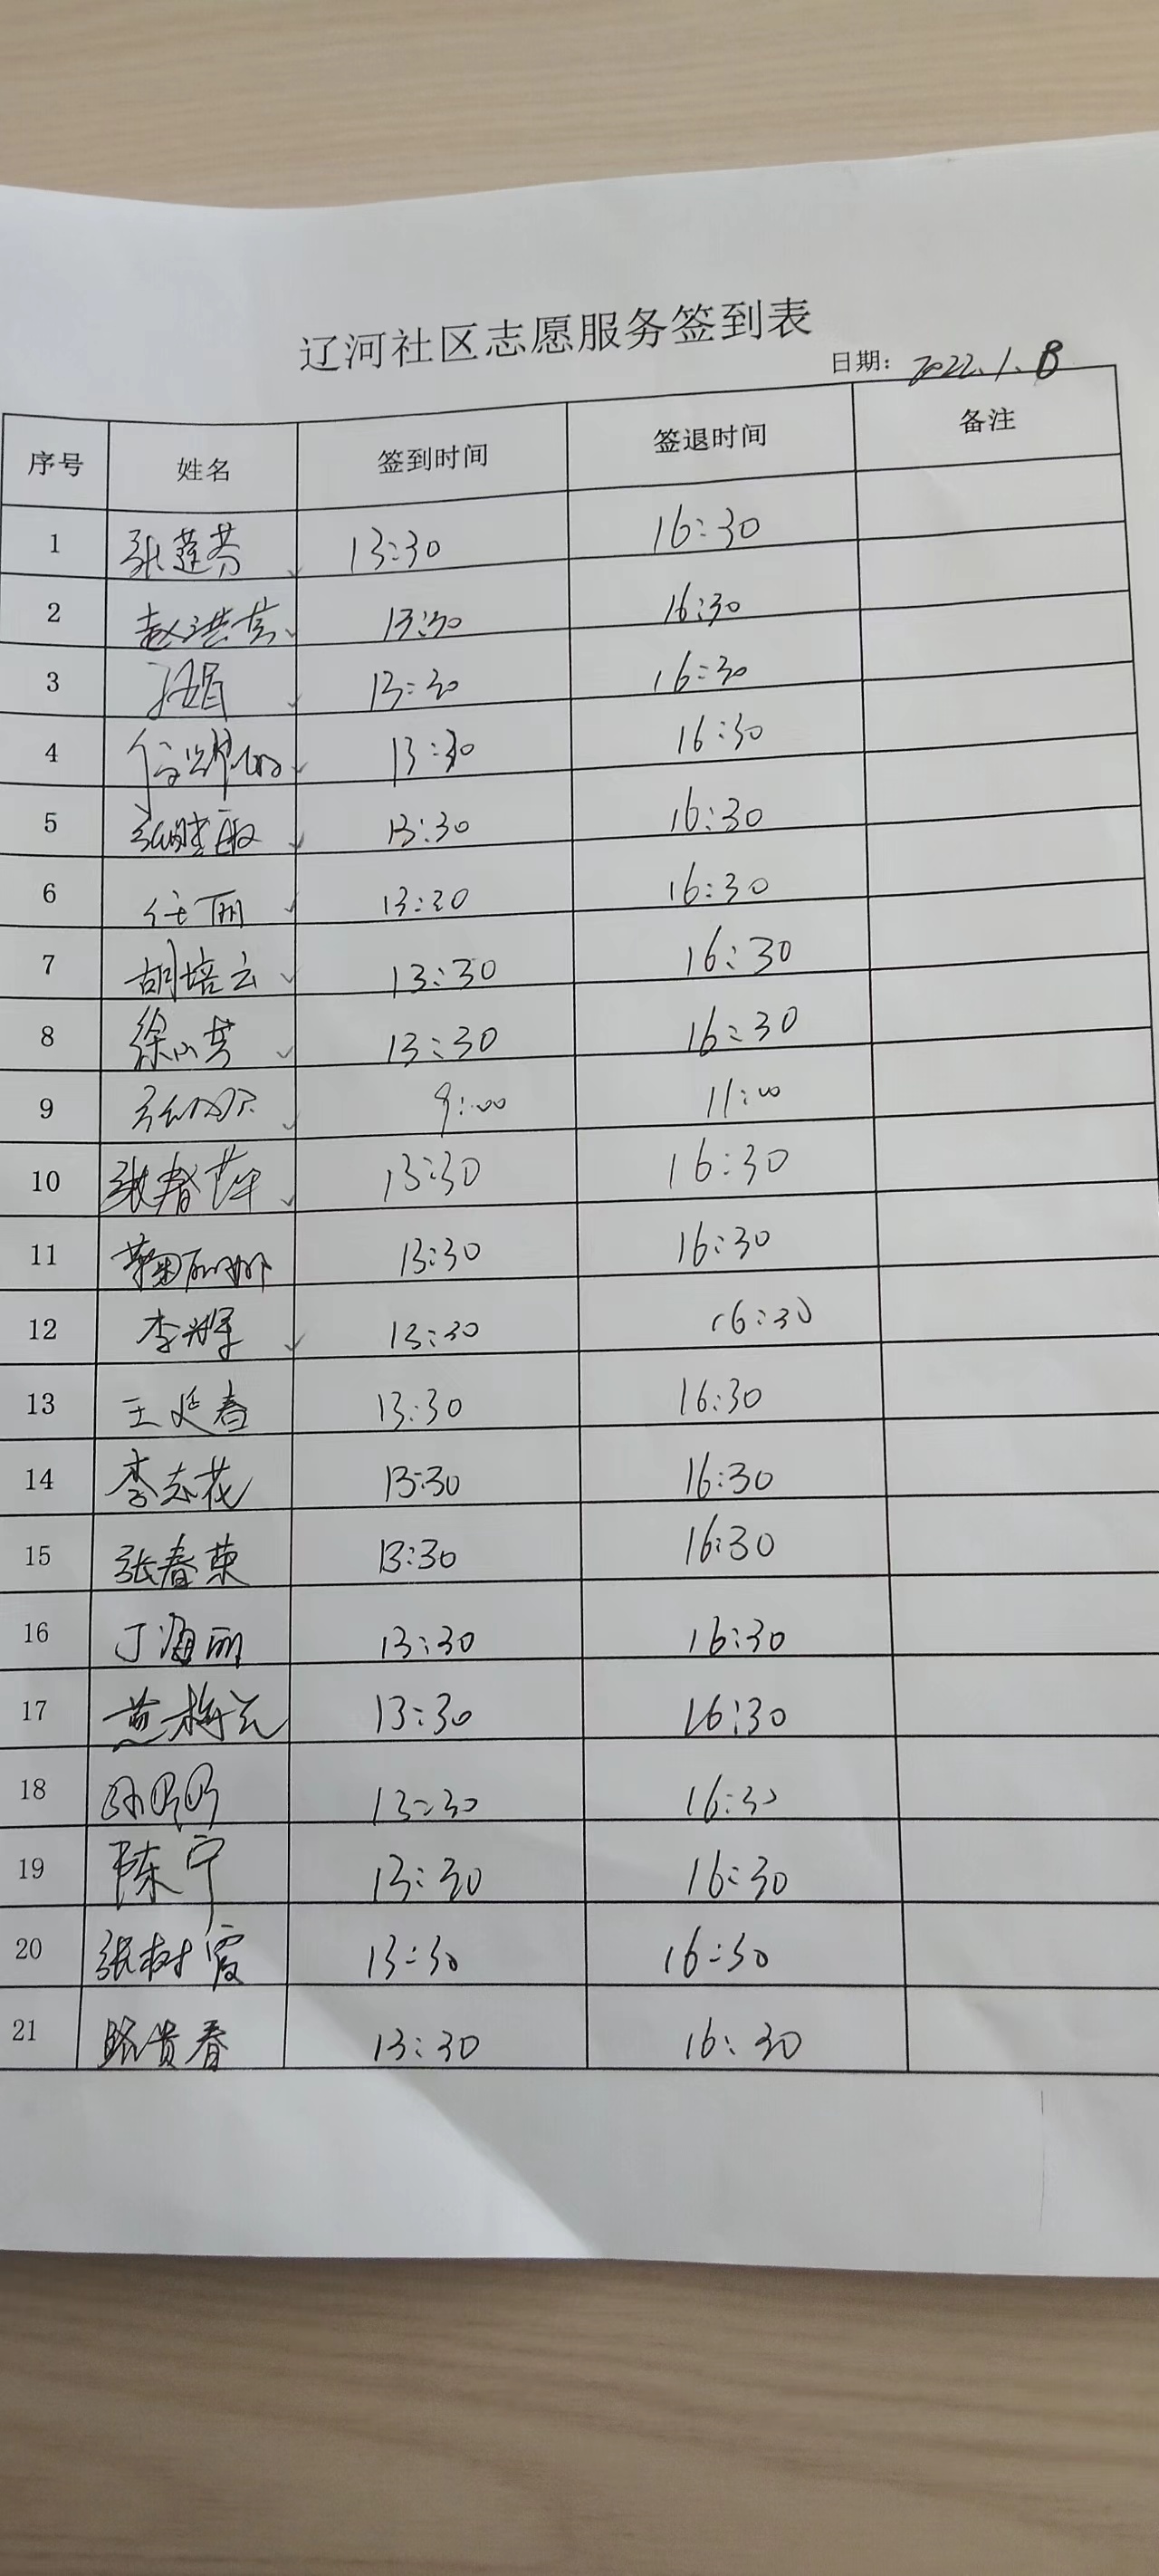 辽河社区志愿服务签到表
日期: 2022.1.13
序号 姓名 签到时间 签退时间 备注
1 张莲芬 13:30 16:30
2 赵洪芳 13:30 16:30
3 13:30 16:30
4 13:30 16:30
5 13:30 16:30
6 任丽 13:30 16:30
7 胡培云 13:30 16:30
8 徐 13:30 16:30
9 9:00 11:00
10 张春萍 13:30 16:30
11 鞠丽娜 13:30 16:30
12 李 13:30 16:30
13 王廷春 13:30 16:30
14 李志花 13:30 16:30
15 张春荣 13:30 16:30
16 丁海丽 13:30 16:30
17 黄梅兰 13:30 16:30
18 13:30 16:30
19 陈宁 13:30 16:30
20 张树霞 13:30 16:30
21 路贵春 13:30 16:30